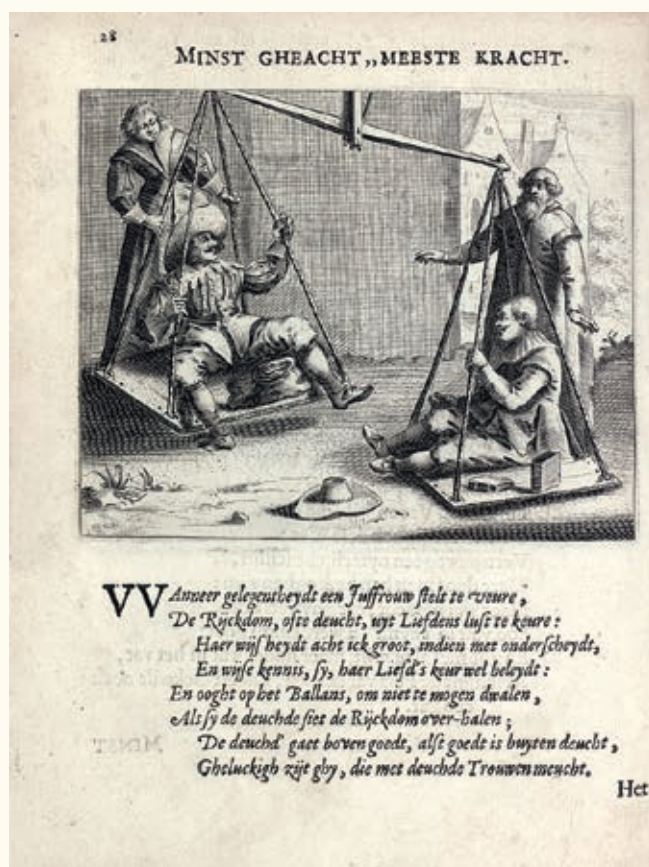 28
MINST GHEACHT,, MEESTE KRACHT.
VVAnneer gelegentheydt een Juffrouw stelt te veure,
De Rijckdom, ofte deucht, uyt Liefdens lust te keure:
Haer wijsheydt acht ick groot, indien met onderscheydt,
En wijse kennis, sy, haer Liefd's keur wel beleydt:
En ooght op het Ballans, om niet te mogen dwalen,
Als sy de deuchde siet de Rijckdom over-halen;
De deuchd' gaet boven goedt, alst goedt is buyten deucht,
Gheluckigh zijt ghy, die met deuchde Trouwen meucht.
Het